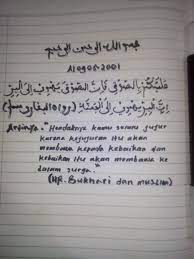 بسم الله الرحمن الرحيم
A10905-2001
عليكم بالصدق فإن الصدق يهدي إلى البر
البر يهدي إلى الجنة (رواه البخاري مسلم)
Artinya: "Hendaknya kamu selalu jujur
karena kejujuran itu akan
membawa kepada kebaikan dan
kebaikan itu akan membawa ke
dalam surga."
(HR. Bukhari dan muslim)